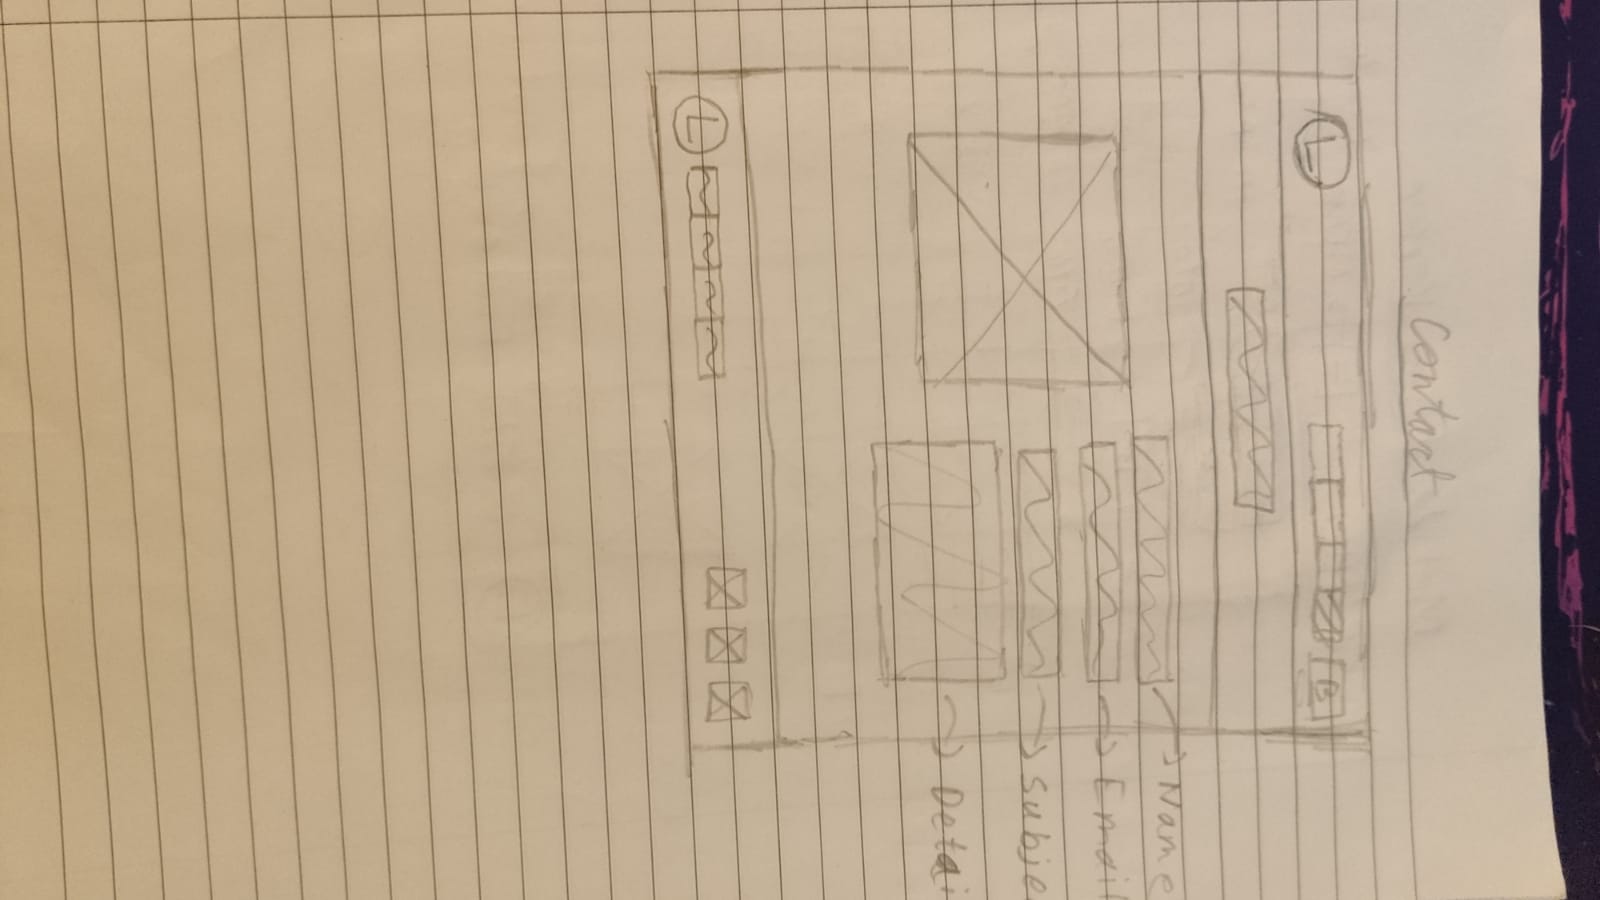 Contact
L
B
Name
Email
Subje
Detai
L